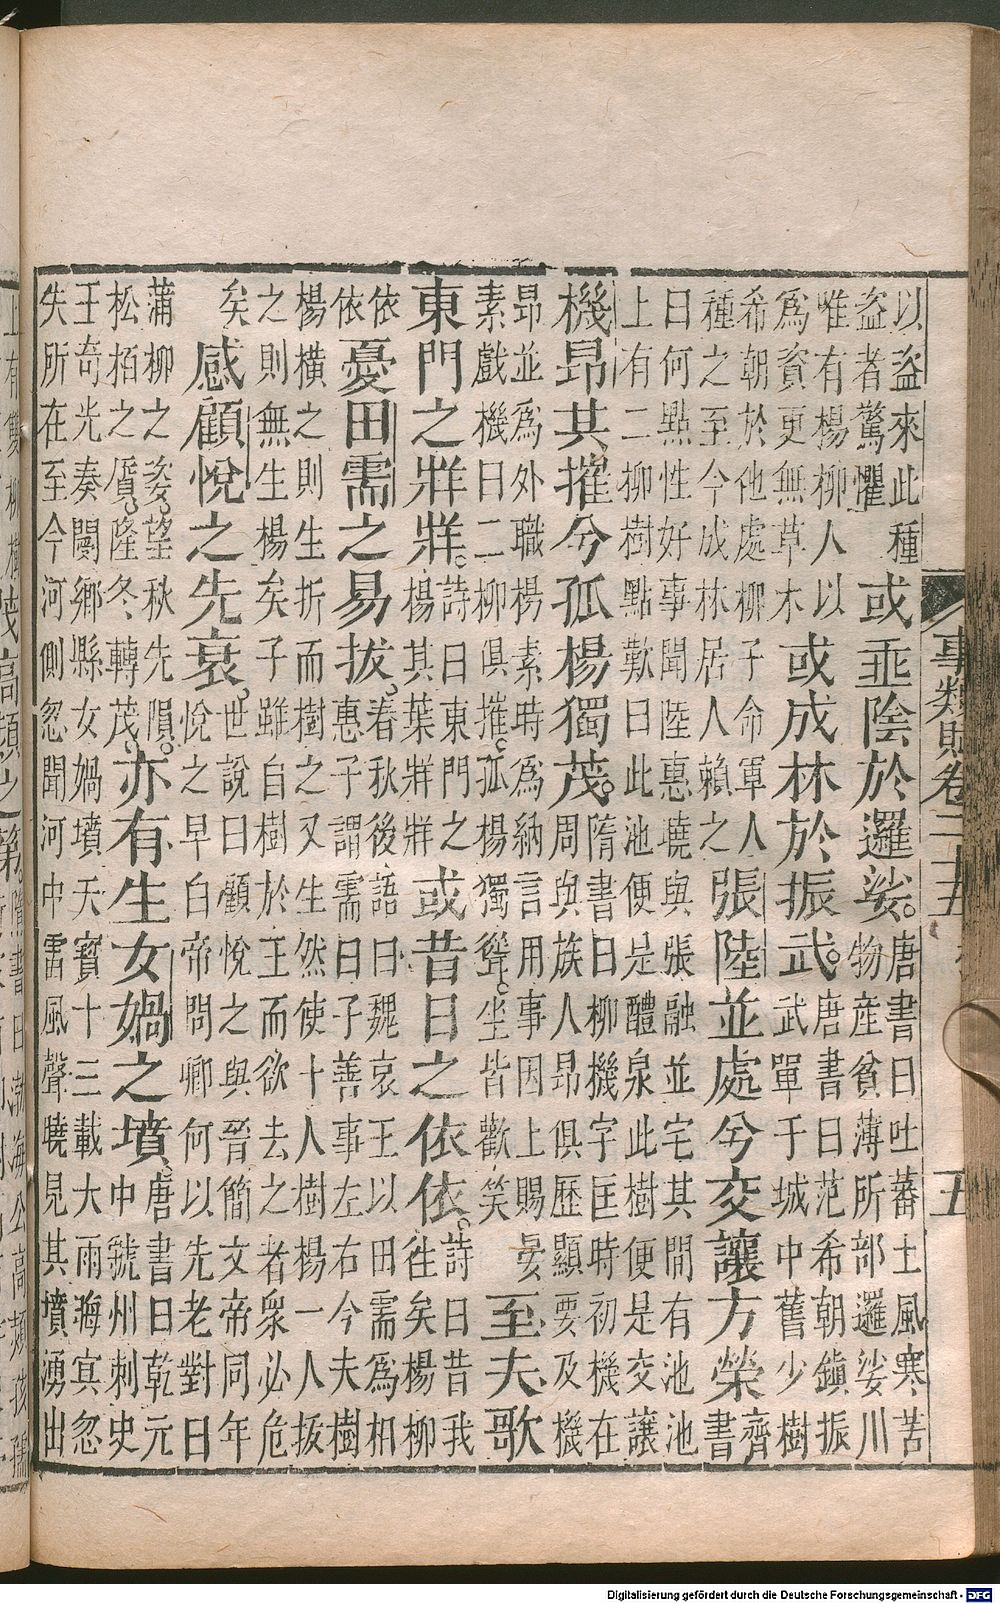 事類賦卷二十五
五
以盜來此種
盜者驚懼
或垂陰於邏娑。
唐書曰吐蕃土風寒苦
物產貧薄所部邏娑川
唯有楊柳人以
爲資更無草木
或成林於振武。
唐書曰范希朝鎮振
武單于城中舊少樹
希朝於他處柳子命軍人
種之至今成林居人賴之
張陸並處兮交讓方榮
齊
書
曰何點性好事聞陸惠曉與張融並宅其間有池池
上有二柳樹點歎曰此池便是醴泉此樹便是交讓
機昂其摧兮孤楊獨茂。
隋書曰柳機字匡時初機在
周與族人昂俱歷顯要及機
昂並爲外職楊素時爲納言用事因上賜宴
素戲機曰二柳俱摧。孤楊獨聳。坐皆歡笑
至夫歌
東門之牂牂。
詩曰東門之
楊其葉牂牂
或昔日之依依。
詩曰昔我
往矣楊柳
依
依
憂田需之易拔。
春秋後語曰魏哀王以田需爲相
惠子謂需曰子善事左右今夫樹
楊橫之則生折而樹之又生然使十人樹楊一人拔
之則無生楊矣子雖自樹於王而欲去之者衆必危
矣
感顧悅之先衰。
世說曰顧悅之與晉簡文帝同年
悅之早白帝問卿何以先老對曰
蒲柳之姿。望秋先隕。
松栢之質。隆冬轉茂。
亦有生女媧之墳。
唐書曰乾元
中虢州刺史
王奇光奏閿鄉縣女媧墳天寶十三載大雨晦寘忽
失所在至今河側忽聞河中雷風聲曉見其墳湧出
Digitalisierung gefördert durch die Deutsche Forschungsgemeinschaft - DFG